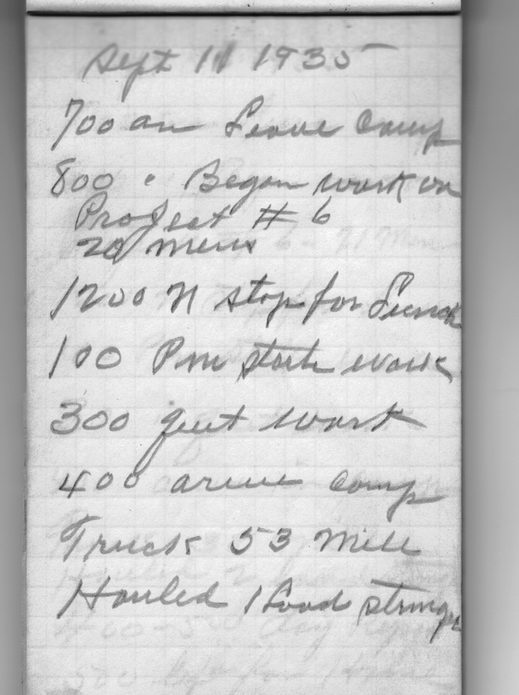 Sept 11 1935
700 am Leave Camp
800 " Began work on
Project # 6
20 mens
1200 N stop for Lunch
100 Pm start work
300 quit work
400 arive Camp
Truck 53 Mile
Hauled 1 Load stringer